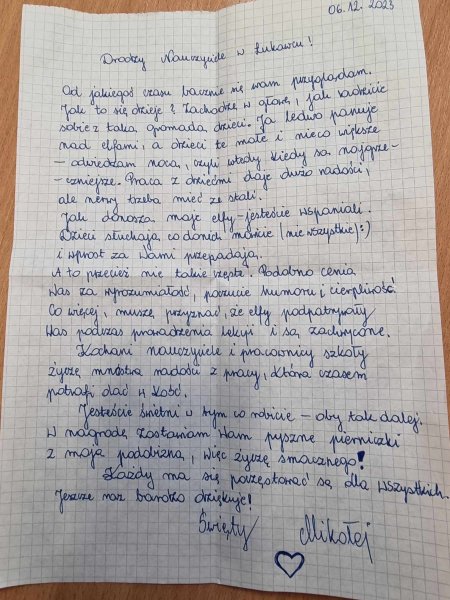 06.12.2023
Drodzy Nauczyciele w Łukawcu!
Od jakiegoś czasu bacznie się wam przyglądam.
Jak to się dzieje? Zachodzę w głowę, jak radzicie
sobie z taką gromadą dzieci. Ja ledwo panuję
nad elfami, a dzieci te małe i nieco większe
– odwiedzam nocą, czyli wtedy kiedy są najgrze-
-czniejsze. Praca z dziećmi daje dużo radości,
ale nerwy trzeba mieć ze stali.
Jak donoszą moje elfy – jesteście wspaniali.
Dzieci słuchają co do nich mówicie (nie wszystkie) :)
i wprost za Wami przepadają.
A to przecież nie takie częste. Podobno cenią
Was za wyrozumiałość, poczucie humoru i cierpliwość.
Co więcej, muszę przyznać, że elfy podpatrywały
Was podczas prowadzenia lekcji i są zachwycone.
Kochani nauczyciele i pracownicy szkoły
życzę mnóstwa radości z pracy, która czasem
potrafi dać w kość.
Jesteście świetni w tym co robicie – oby tak dalej.
W nagrodę zostawiam Wam pyszne pierniczki
z moją podobizną, więc życzę smacznego!
Każdy ma się poczęstować są dla wszystkich.
Jeszcze raz bardzo dziękuję!
Święty Mikołaj